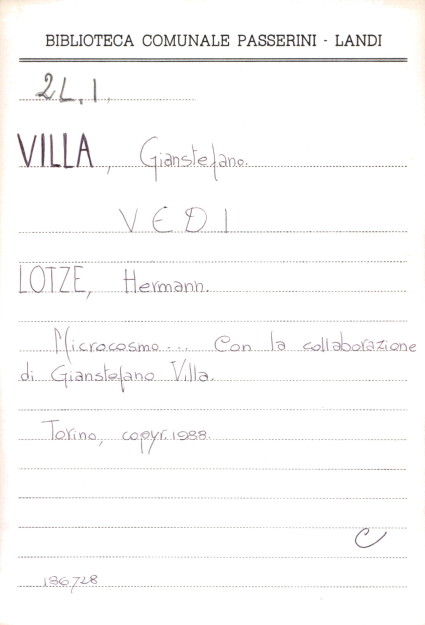 BIBLIOTECA COMUNALE PASSERINI - LANDI
2L.1.
VILLA, Gianstefano.
VEDI
LOTZE, Hermann.
Microcosmo... Con la collaborazione
di Gianstefano Villa.
Torino, copyr. 1988.
C
186728